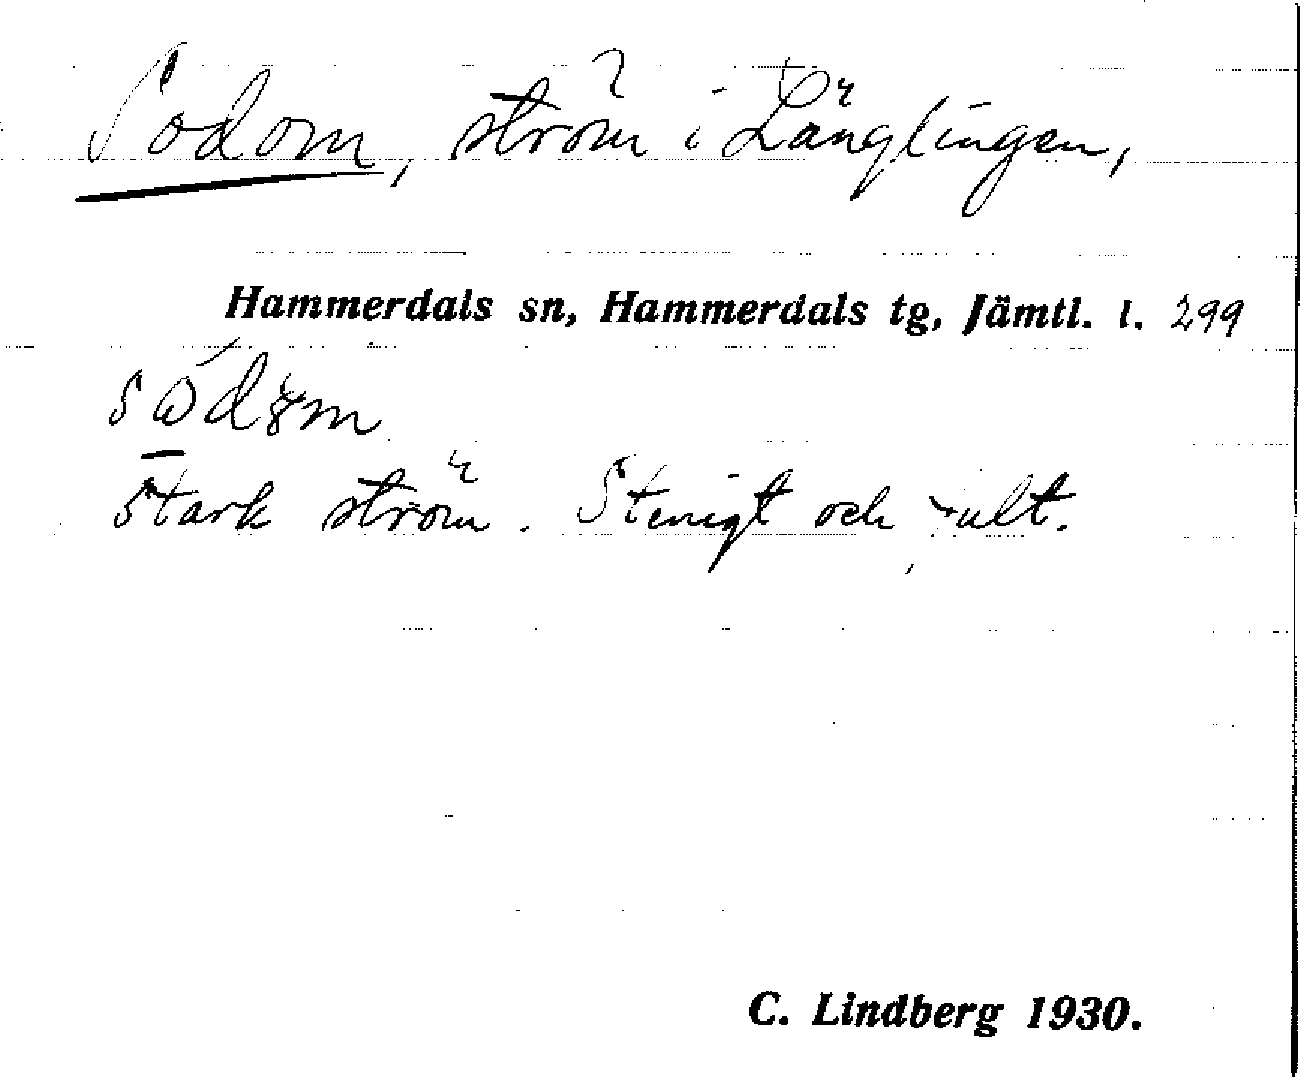 Sodom, ström i Länglingen,
Hammerdals sn, Hammerdals tg, Jämtl. l. 299
Stark ström. Stenigt och
C. Lindberg 1930.